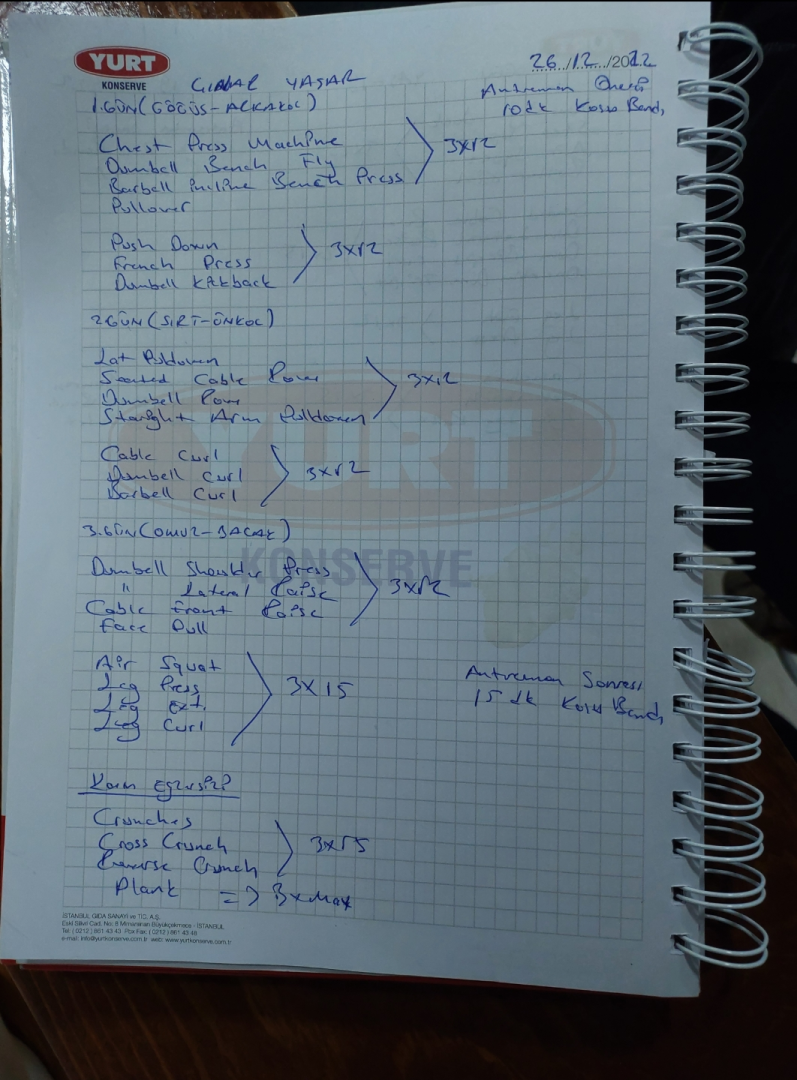 YURT
KONSERVE
26/12/2022
YAŞAR
Antreman Öncesi
10 dk Koşu Bandı
1.GÜN(GÖĞÜS-ARKAKOL)
Chest Press Machine
Dumbell Bench Fly
Barbell İncline Bench Press
3x12
Pullover
Push Down
French Press
3x12
Dumbell Kickback
2.GÜN(SIRT-ÖNKOL)
Lat Pulldown
Seated Cable Row
3x12
Dumbell Row
Straight Arm Pulldown
Cable Curl
Dumbell Curl
3x12
Barbell Curl
3.GÜN(OMUZ-BACAK)
Dumbell Shoulder Press
" Lateral Raise
3x12
Cable Front Raise
Face Pull
Air Squat
Leg Press
3x15
Leg Ext.
Leg Curl
Antreman Sonrası
15 dk Koşu Bandı
Karın Egzersizi
Crunches
Cross Crunch
3x15
Reverse Crunch
Plank => 3xMax
YURT
KONSERVE
İSTANBUL GIDA SANAYİ ve TİC. A.Ş.
Eski Silivri Cad. No: 8 Mimarsinan Büyükçekmece - İSTANBUL
Tel: ( 0212 ) 861 43 43 Pbx Fax: ( 0212 ) 861 43 48
e-mail: info@yurtkonserve.com.tr web: www.yurtkonserve.com.tr